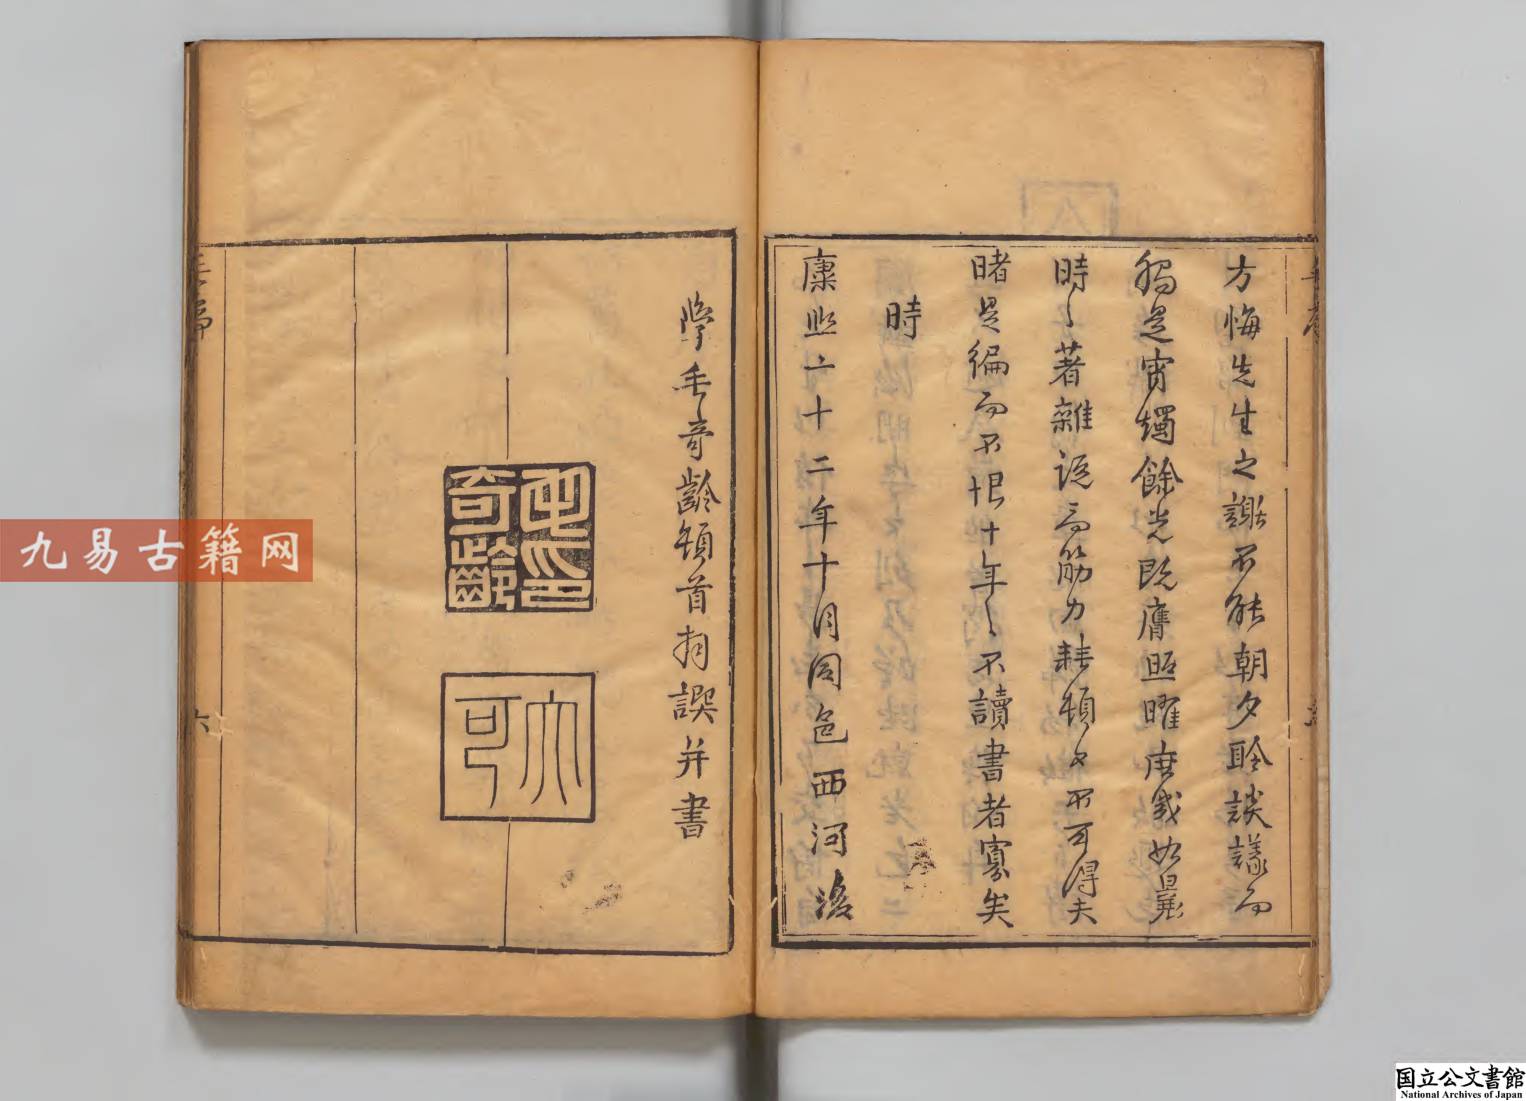 方悔先生之謝不能朝夕聆談議而
觸是宵燭餘光既廣照曜庶幾如曩
時時著雜說而筋力耗頓又不可得夫
睹是編而不恨十年年不讀書者寡矣
時
康熙六十二年十月同邑西河
學毛奇齡頓首拜譔并書
毛印奇齡
大可
六
九易古籍网
国立公文書館
National Archives of Japan